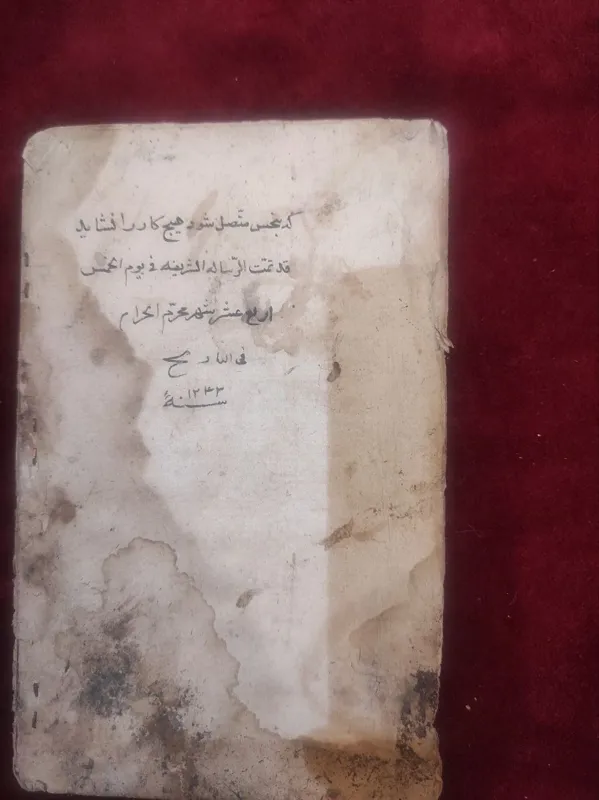 که بنحس متصل شود هیچ کار را نشاید
قد تمت الرساله الشریفه فی یوم الخمس
اربع عشر شهر محرم الحرام
فی التاریخ
سنة ۱۲۴۳